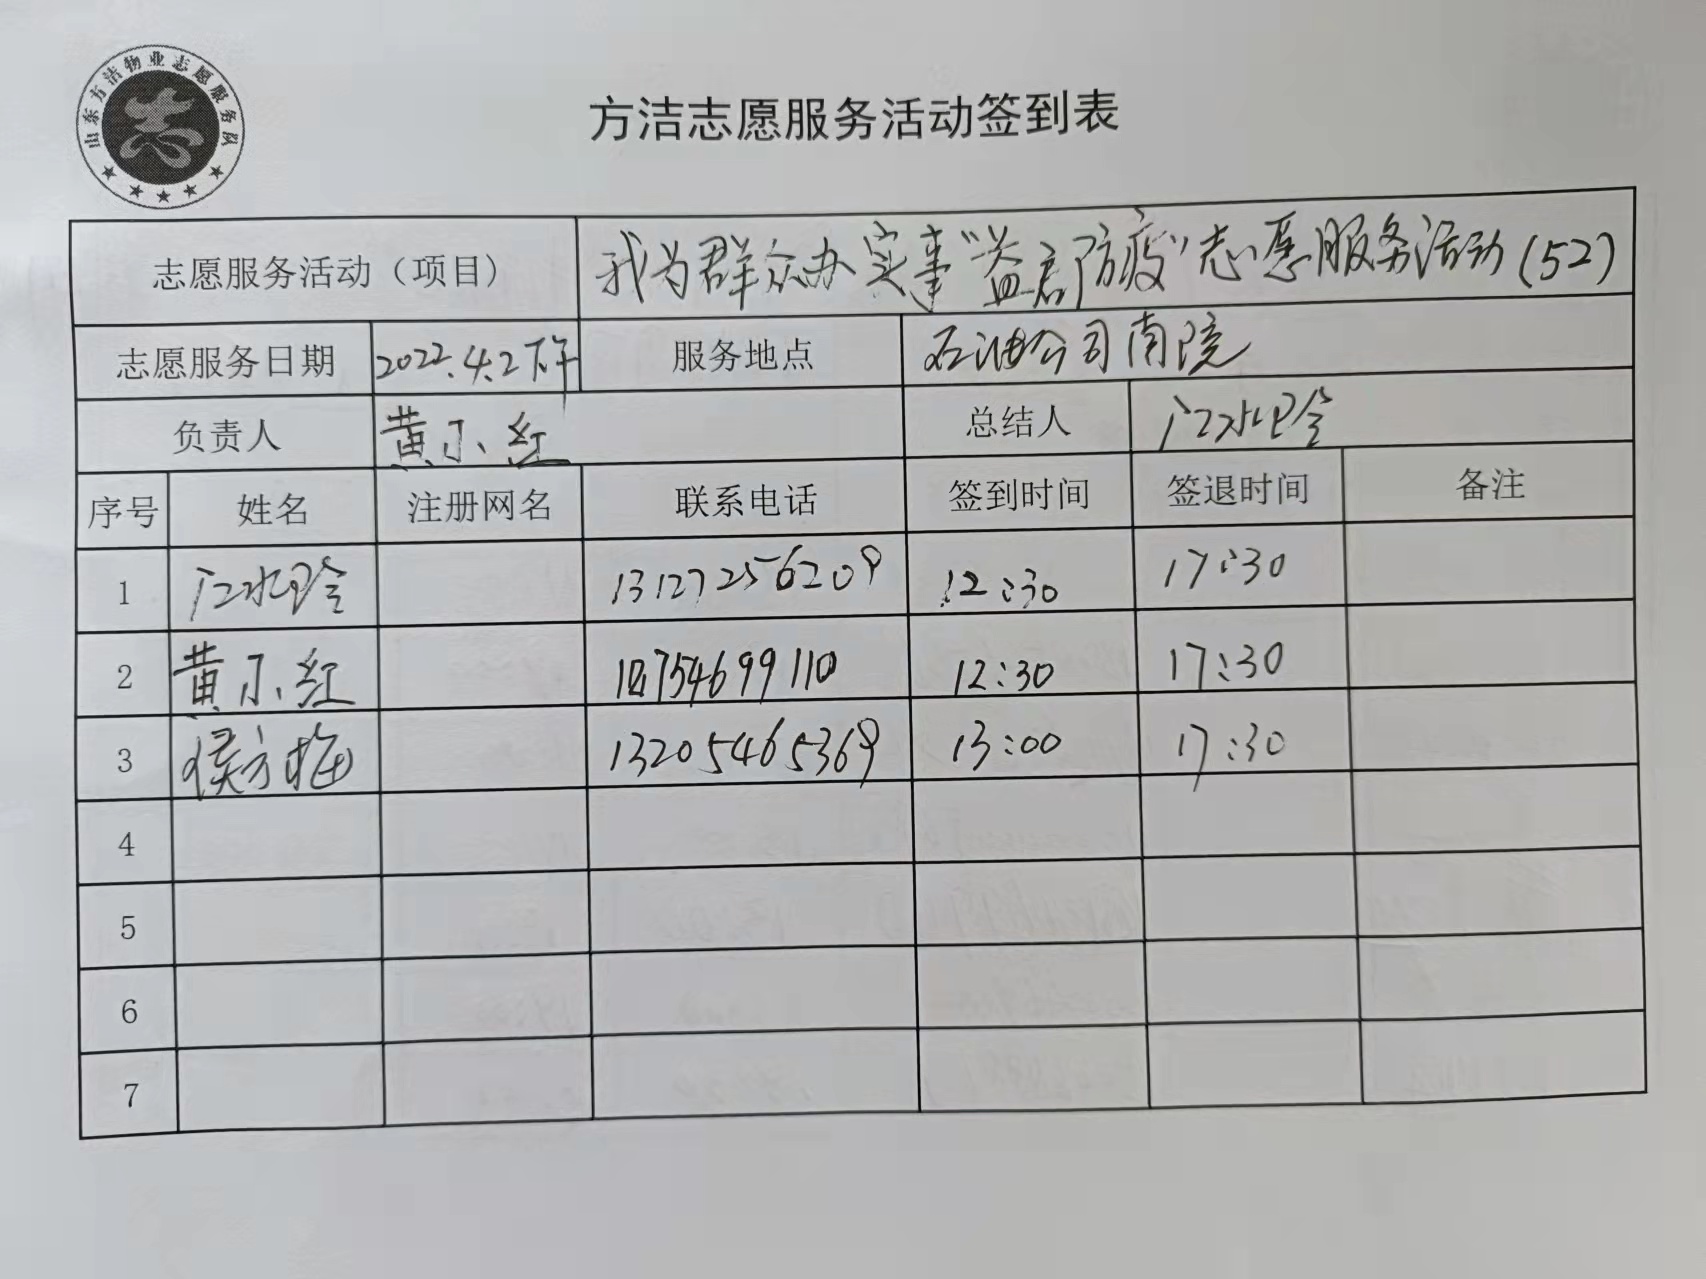 山东方洁物业志愿服务队
志
方洁志愿服务活动签到表
志愿服务活动（项目） 我为群众办实事“益君防疫”志愿服务活动(52)
志愿服务日期 2022.4.2下午 服务地点 石油公司南院
负责人 黄小红 总结人 江水玲
序号 姓名 注册网名 联系电话 签到时间 签退时间 备注
1 江水玲 13127256209 12:30 17:30
2 黄小红 18754699110 12:30 17:30
3 侯方梅 13205465369 13:00 17:30
4
5
6
7